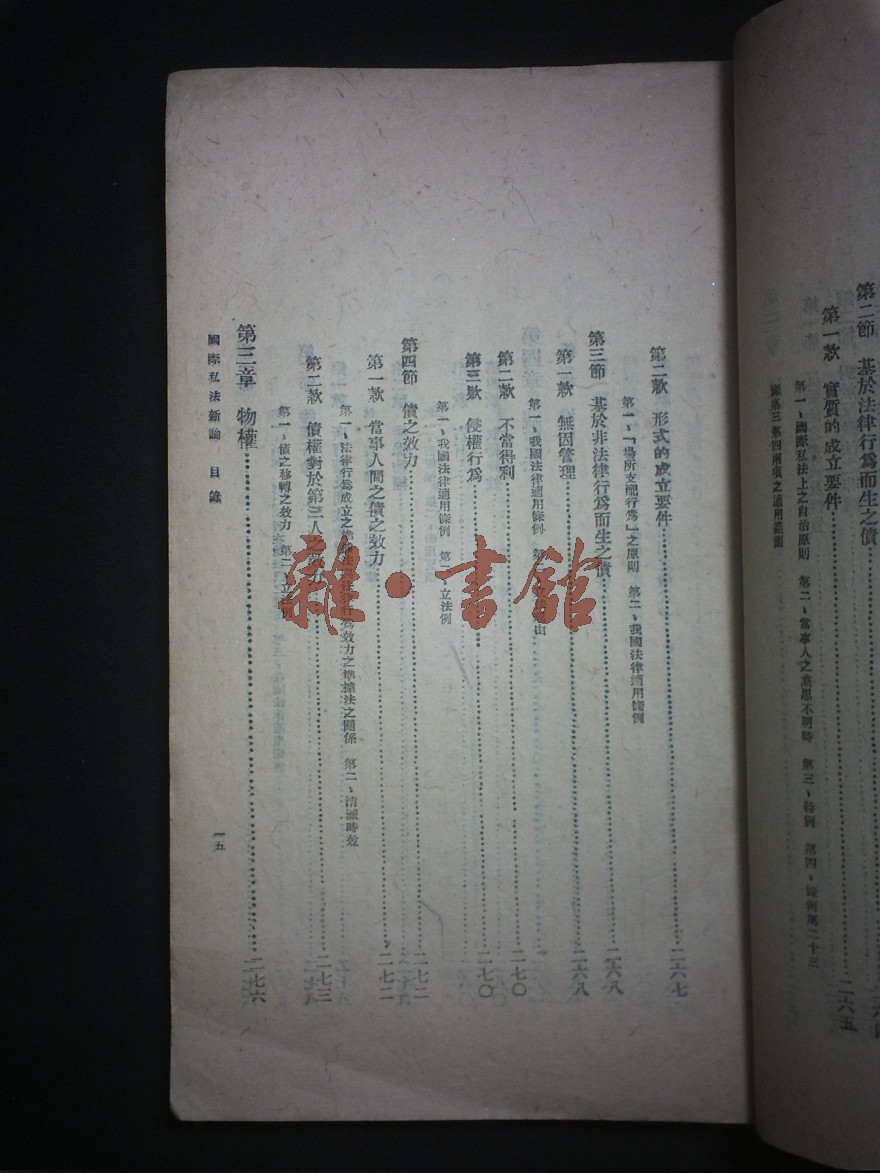 第二節 基於法律行爲而生之債
第一款 實質的成立要件 二六五
第一、國際私法上之自治原則 第二、當事人之意思不明時 第三、特例 第四、條例第二十三
條第三第四兩項之適用範圍
第二款 形式的成立要件 二六七
第一、「場所支配行爲」之原則 第二、我國法律適用條例
第三節 基於非法律行爲而生之債 二六八
第一款 無因管理 二六八
第一、我國法律適用條例 第二、立 由
第二款 不當得利 二七〇
第三款 侵權行爲 二七〇
第一、我國法律適用條例 第二、立法例
第四節 債之效力 二七二
第一款 當事人間之債之效力 二七二
第一、法律行爲成立之準據法與法律行爲效力之準據法之關係 第二、消滅時效
第二款 債權對於第三人之效力 二七三
第一、債之移轉之效力 第二、立法例
第三章 物權 二七六
國際私法新論 目錄
一五
雜·書館